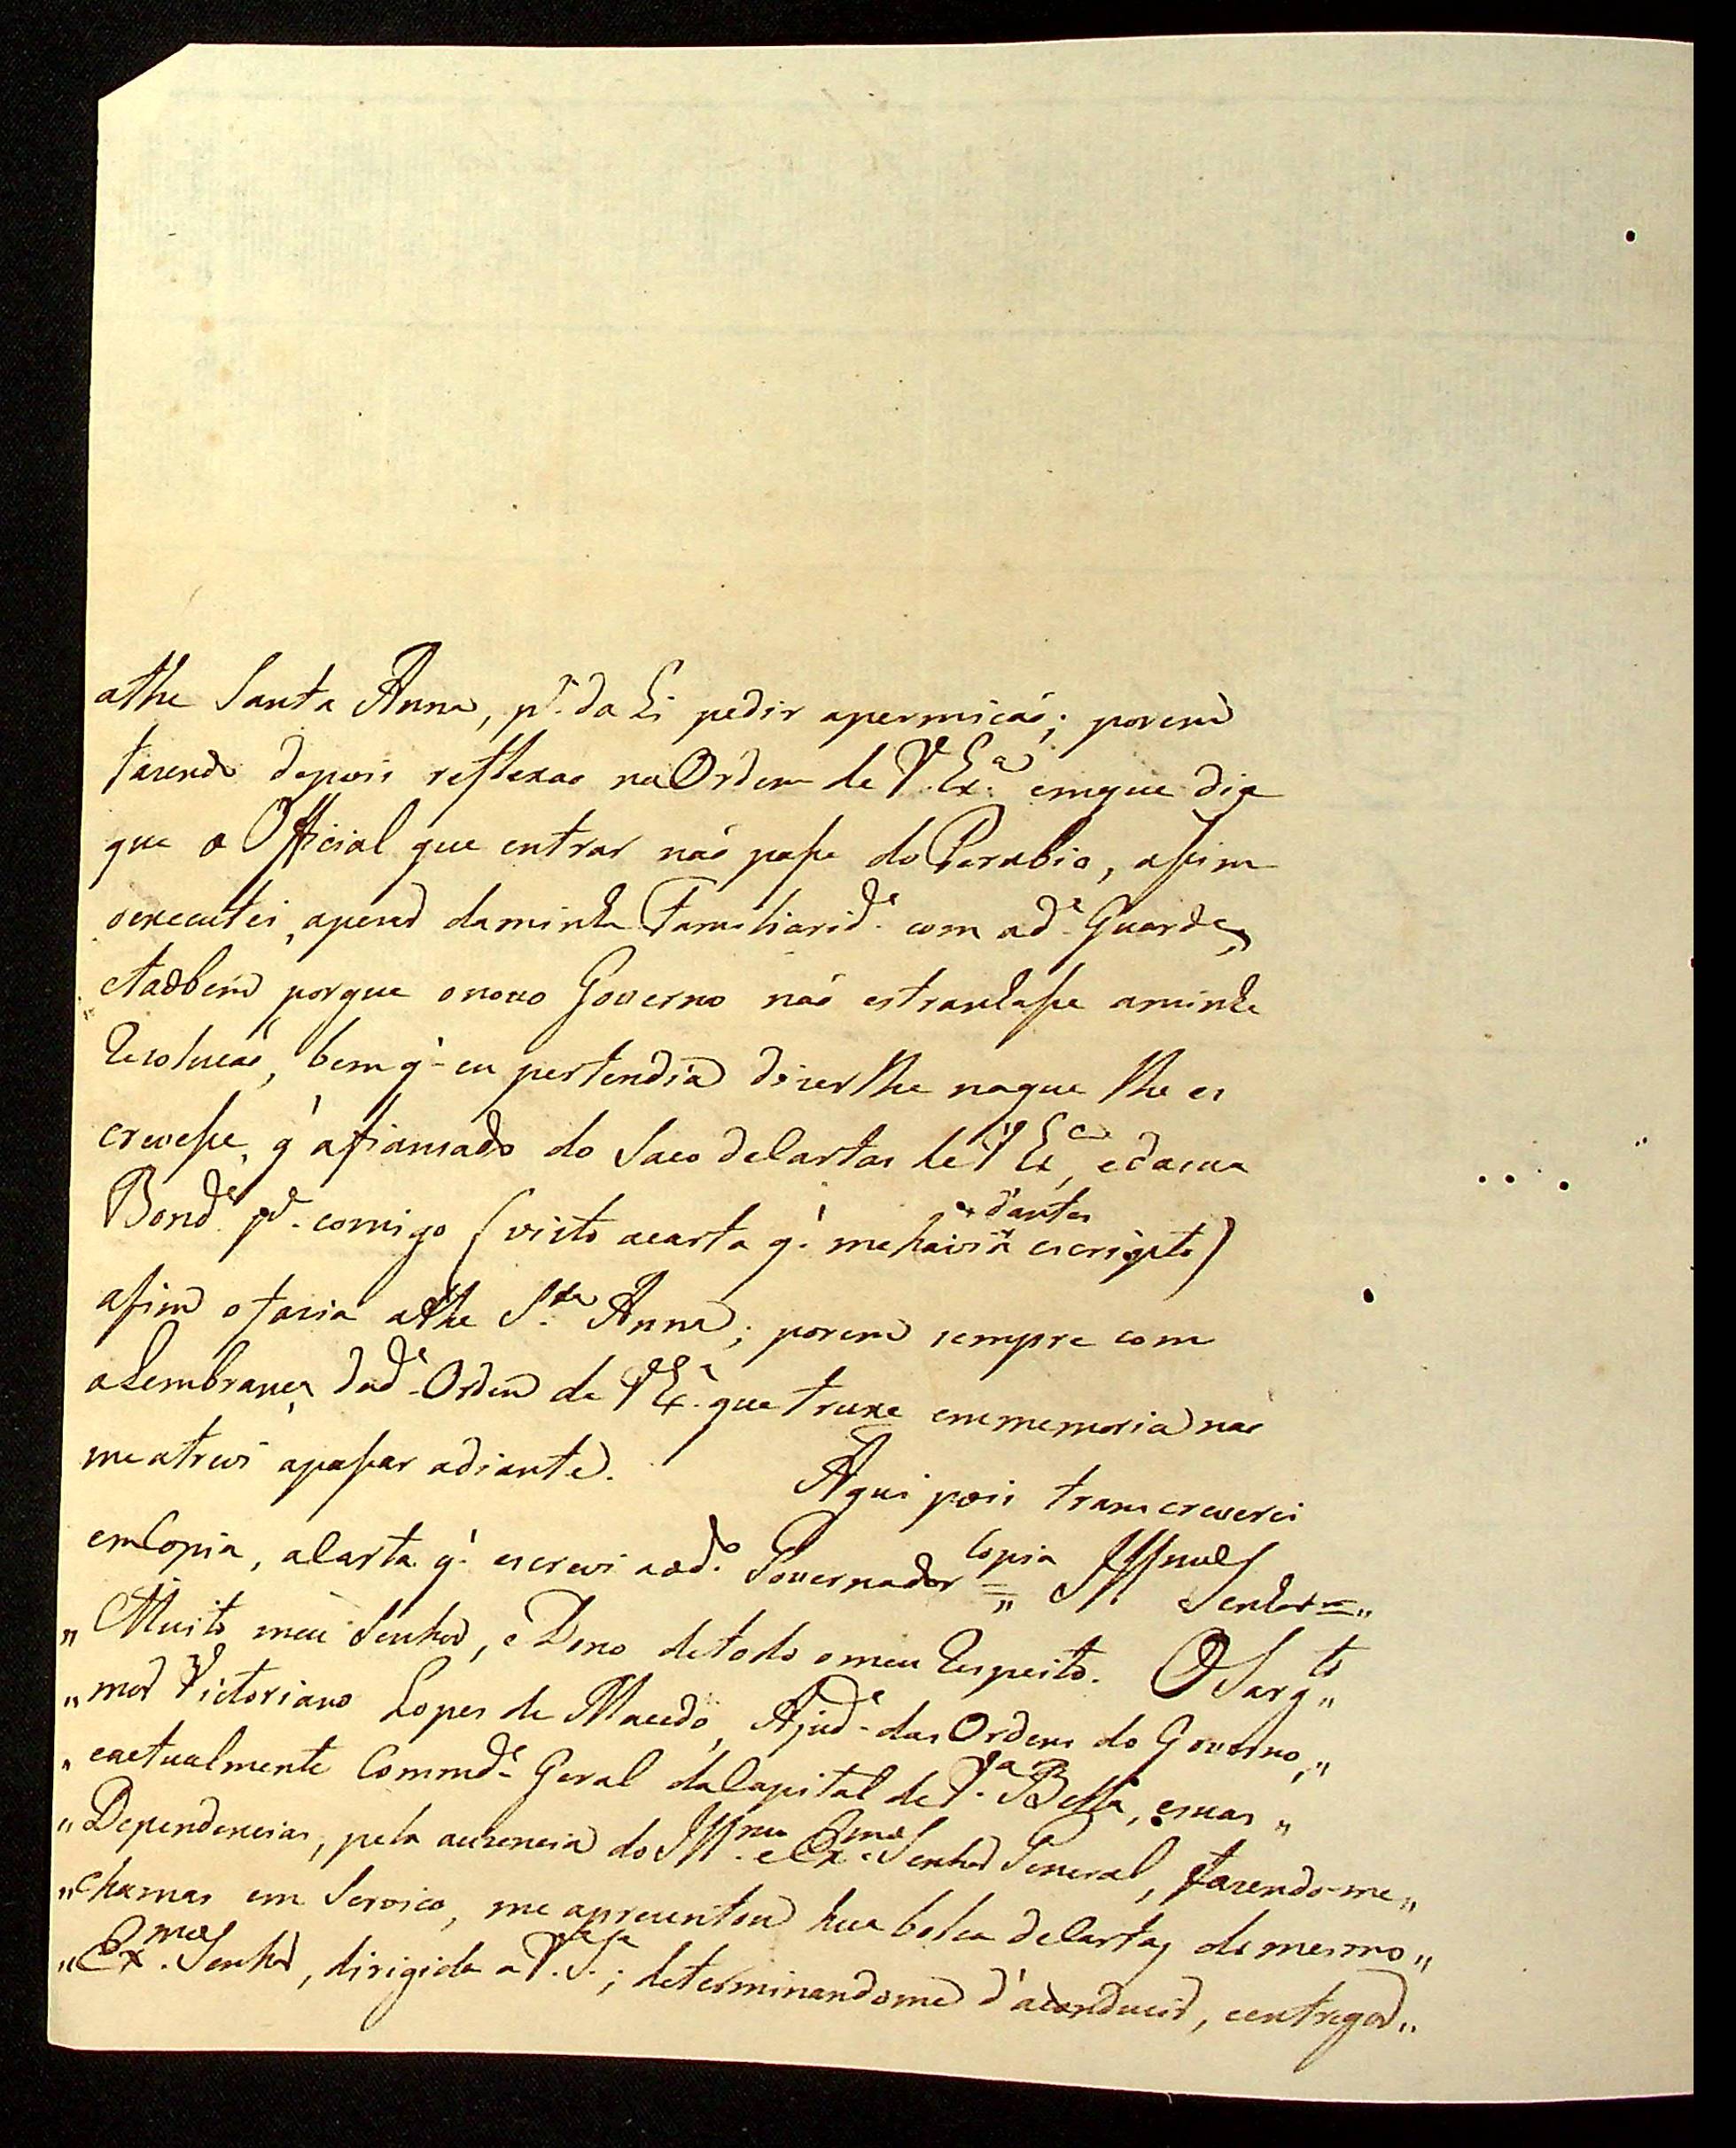 athe Santa Anna, pª. da hi pedir apermicaõ; porem
fazendo depois reflexao na Ordem de V. Exª. emque diz
que o Official que entrar naõ passe do Perubio, assim
oexecutei, apezar daminha Familiaridᵉ. com adᵃ. Guarda,
etaobem porque onovo Governo naõ estranhasse aminha
Rezolucaõ, bem q̃ eu pertendia dizerlhe naque lhe es
crevesse, q̃ afiansado do Saco deCartas de V Exª, edasua
Bondᵉ. pª. comigo (visto acarta q̃. mehavia d'antes escripto)
assim ofaria athe Sᵗᵃ Anna; porem sempre com
aLembrança dadª. Ordem de V Exª. que truxe emmemoria nao
meatrevi apassar adiante. Aqui pois transcreverei
emCopia, aCarta q̃. escrevi aodº. Governador = Copia „ Illmº Senhor = „
„ Muito meu Senhor, e Dmo detodo omeu Respeito. O Sargᵗᵒ „
„ mor Victoriano Lopes de Macedo, Ajudᵉ. das Ordens do Governo, „
„ eactualmente Commdᵉ. Geral daCapital de Vª. Bella, esuas „
„ Dependencias, pela auzencia do Illmº. e Exmº. Senhor General, fazendo-me „
„ chamar em Servico, me aprezentou hua bolca deCartas do mesmo „
„ Exmº. Senhor, dirigida a V. Sª.; determinandome d'aconduzir, eentregar „